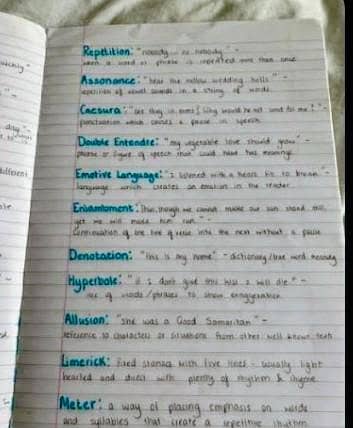 Repetition: "nobody... no nobody" -
when a word or phrase is repeated more than once
Assonance: "hear the mellow wedding bells" -
repetition of vowel sounds in a string of words
Caesura: "are they in some? Why would he not send for me?" -
punctuation which causes a pause in speech
Double Entendre: "my vegetable love should grow" -
phrase or figure of speech that could have two meanings
Emotive Language: "I listened with a heart fit to break" -
language which creates an emotion in the reader
Enjambment: "Thus, though we cannot make our sun stand still,
yet we will make him run" -
continuation of one line of verse into the next without a pause
Denotation: "this is my home" - dictionary/true word meaning
Hyperbole: "if I don't give this kiss I will die" -
use of words/phrases to show exaggeration
Allusion: "She was a Good Samaritan" -
reference to characters or situations from other well known texts
Limerick: fixed stanza with five lines - usually light
hearted and with plenty of rhythm & rhyme
Meter: a way of placing emphasis on words
and syllables that create a repetitive rhythm